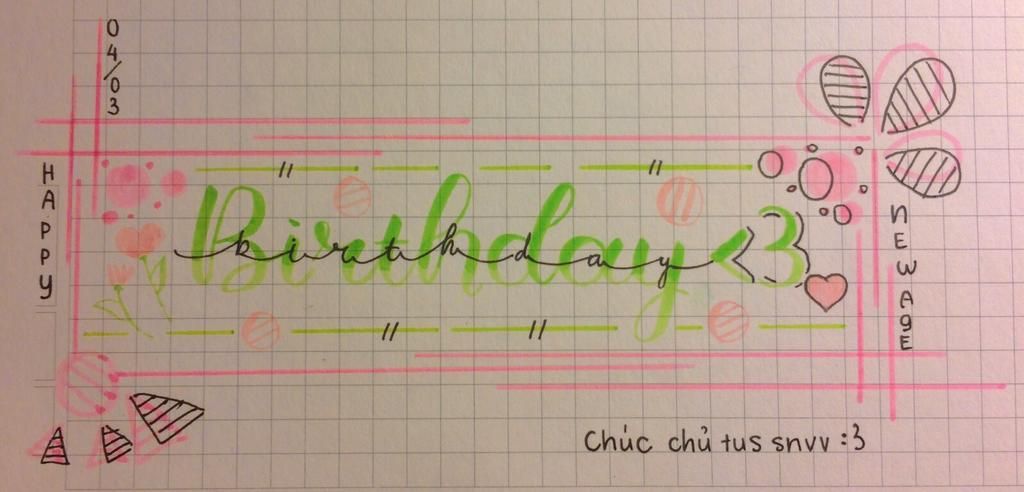 04/03
HAPPY
Birthday <3
birthday <3
NEW AGE
Chúc chủ tus snvv :3